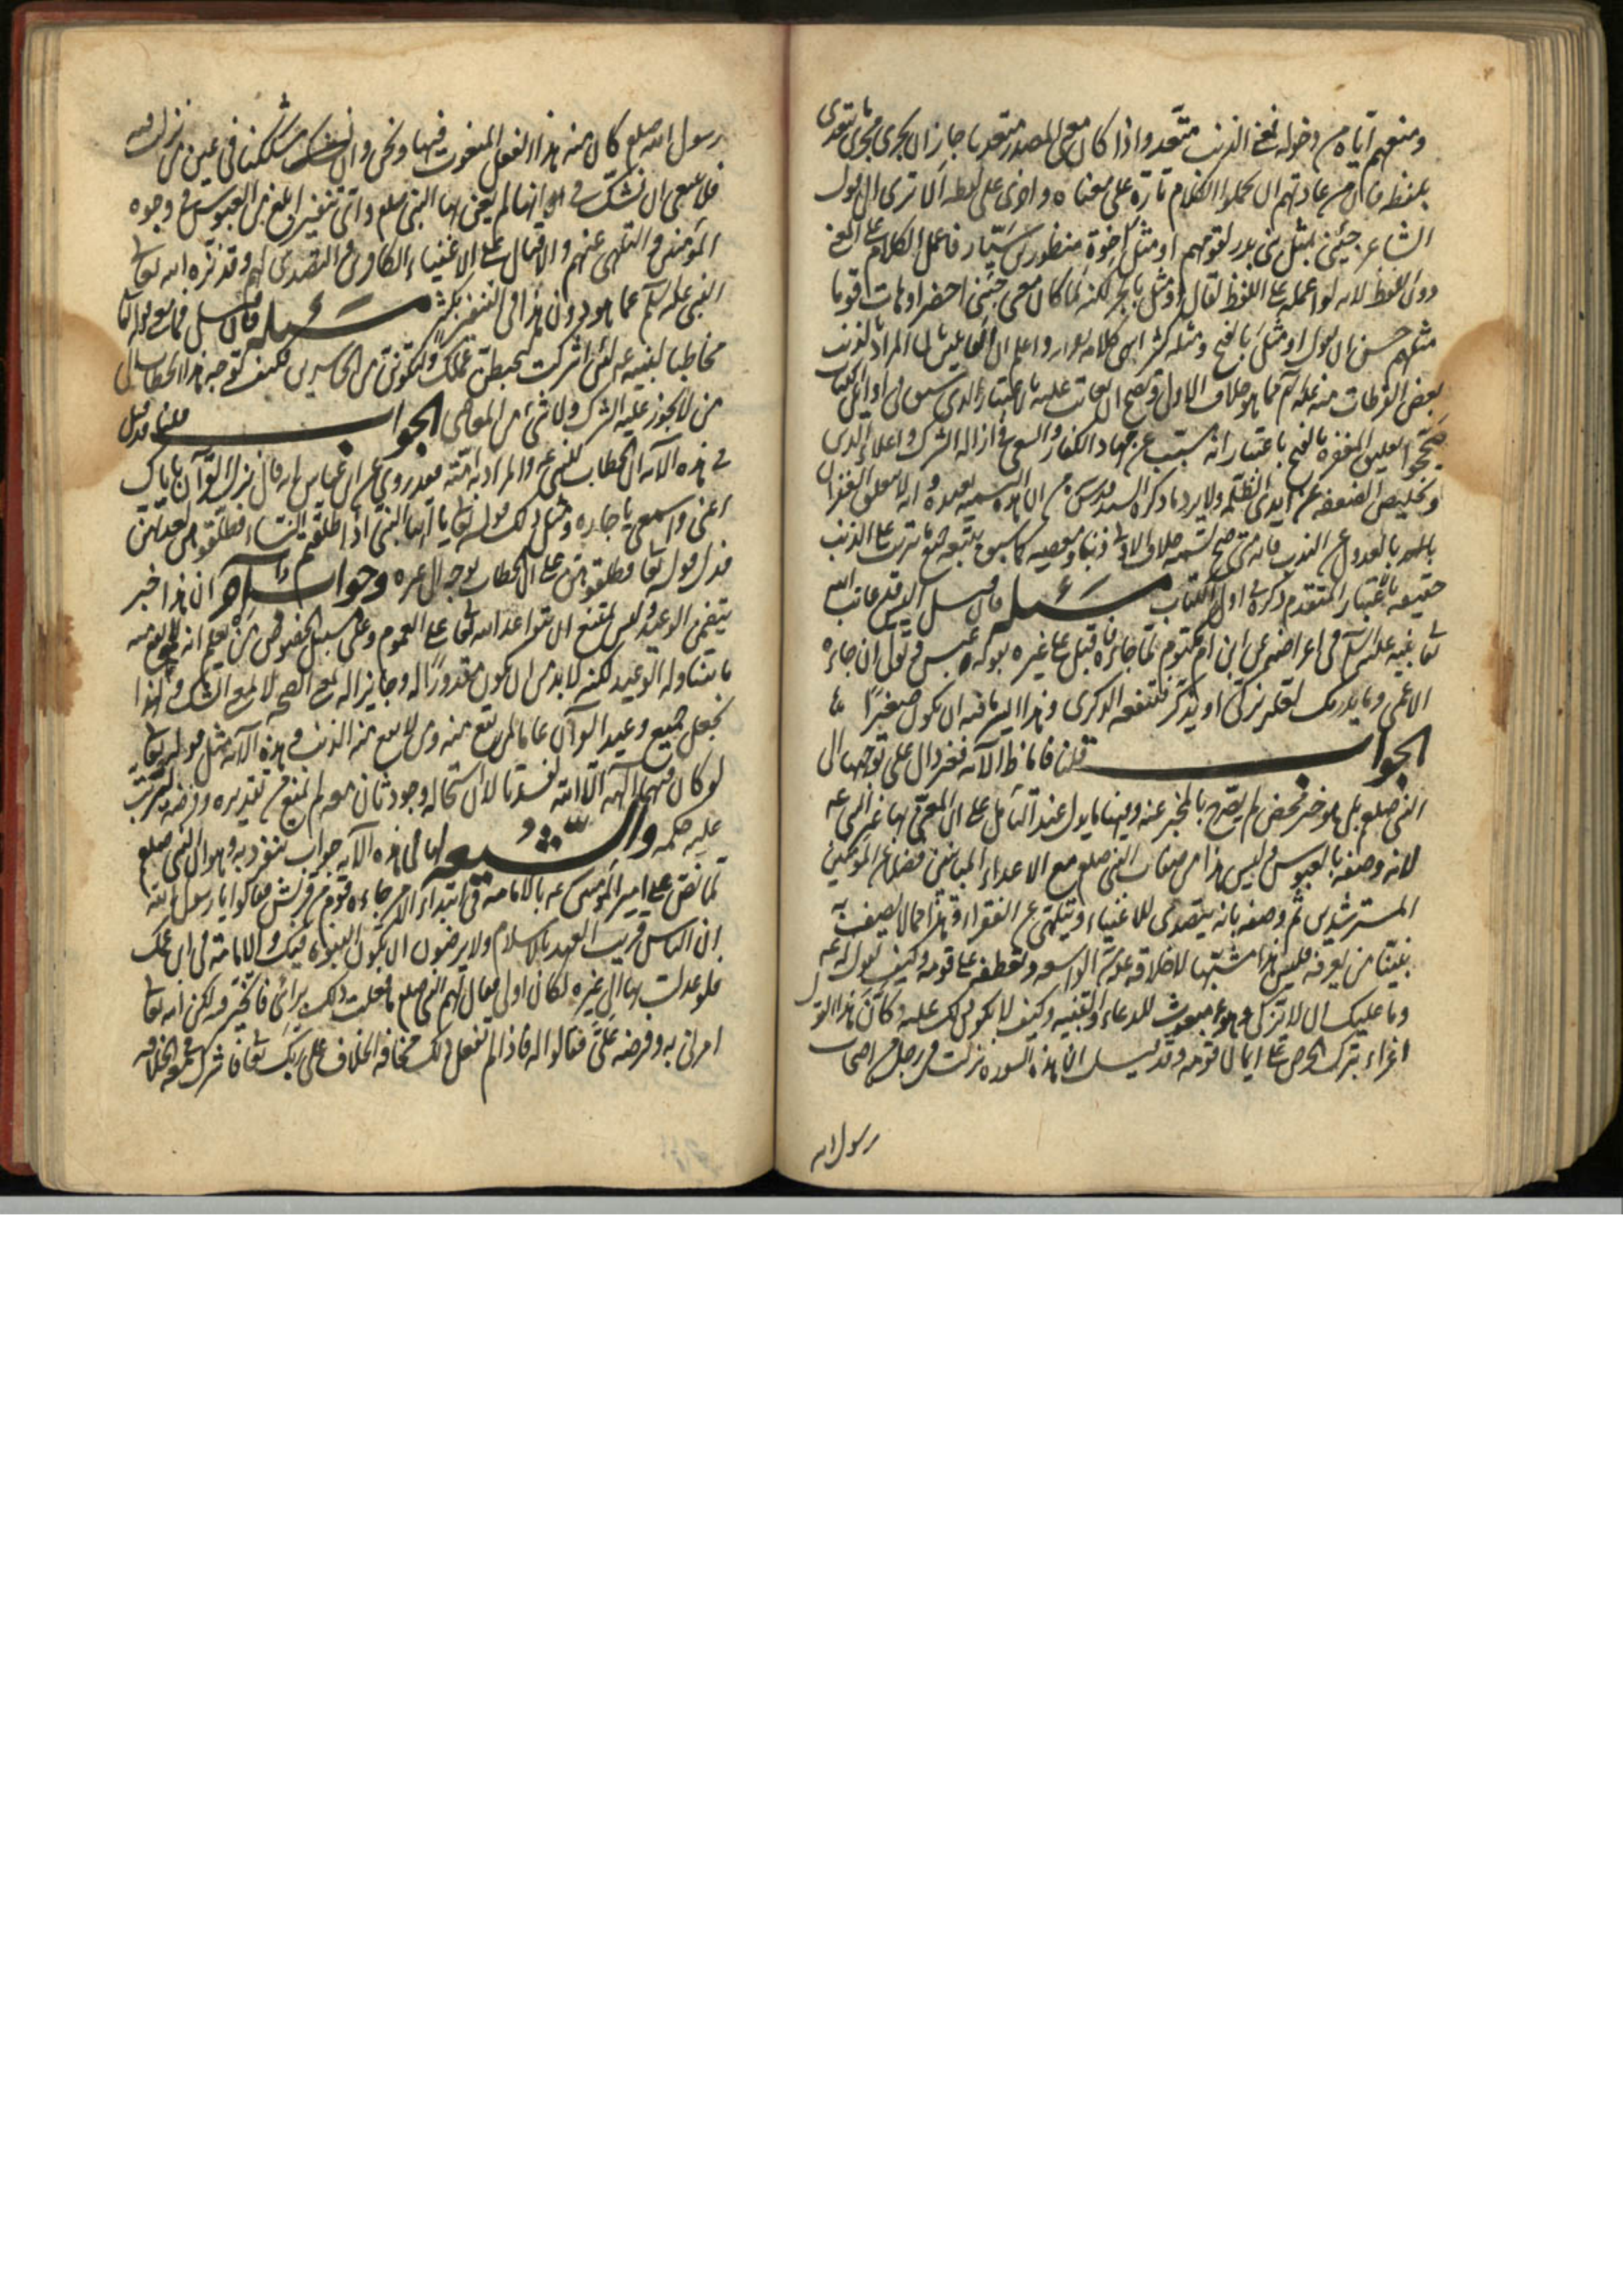 ومنعهم اياه من دخوله فمعنى الذنب متعد واذا كان معنى المصدر متعديا جاز ان يجرى مجرى ما يتعدى
بلفظه فان من عادتهم ان يحملوا الكلام تارة على معناه واخرى على لفظه الا ترى الى قول
الشاعر جئنى بمثل بنى بدر لقومهم او مثل اخوة منظور بن سيار فاعمل الكلام على المعنى
دون اللفظ لانه لو اعمله على اللفظ لقال او مثل بالجر لكنه لما كان معنى جئنى احضر او هات قوما
مثلهم حسن ان يقول او مثل بالفتح ومثله كثير انتهى كلامه واعلم ان القائلين بان المراد بالذنب
بعض الفرطات منه عليه السلم مما هو خلاف الاولى ويصح ان يعاتب عليه بالاعتبار الذى سبق فى اوائل الكتاب
صححوا تعليق المغفرة بالفتح باعتبار انه سبب عن جهاد الكفار والسعى فى ازالة الشرك واعلاء الدين
وتخليص الضعفة عن ايدى الظلمة ولا يرد ما ذكره السيد
بالعدول عن الندب فانه متى صح تسمية خلاف الاولى ذنبا ومعصية كما سبق يتبعه جميع ما يترتب على الذنب
حقيقة باعتبار المتقدم ذكره فى اول الكتاب مسئله فان قيل اليس قد عاتب الله
تعا نبيه عليه السلم فى اعراضه عن ابن ام مكتوم لما جاءه واقبل على غيره بقوله عبس وتولى ان جاءه
الاعمى وما يدريك لعله يزكى او يذكر فتنفعه الذكرى وهذا ايسر ما فيه ان يكون صغيرا
الجواب قلنا فاما ظ الآية فغير دال على توجهها الى
النبى صلعم بل هو خبر محض لم يصرح بالمخبر عنه وفيها ما يدل عند التامل على ان المعنى بها غير النبى عم
لانه وصفه بالعبوس وليس هذا من صفات النبى صلعم مع الاعداء المباينين فضلا عن المؤمنين
المسترشدين ثم وصفه بانه يتصدى للاغنياء ويتلهى عن الفقراء وهذا مما لا يصف به
نبينا من يعرفه فليس هذا مشبها لاخلاقه عم الواسعة وتعطفه على قومه وكيف يقول له عم
وما عليك ان لا تزكى وهو مبعوث للدعاء والتنبيه وكيف لا يكون ذلك عليه وكأن هذا القول
اغراء بترك الحرص على ايمان قومه وقد قيل ان هذه السورة نزلت فى رجل من اصحاب
رسول الله
رسول الله صلعم كان منه هذا الفعل المنعوت فيها ونحن وان شككنا فى عين من نزلت فيه
فلا ينبغى ان نشك فى انها لم يعن بها النبى صلعم واى تنفير ابلغ من العبوس فى وجوه
المؤمنين والتلهى عنهم والاقبال على الاغنياء الكافرين والتصدى لهم وقد نزه الله تعا
النبى عليه السلم عما هو دون هذا فى التنفير بكثير مسئله فان قيل فما معنى قوله تعا
مخاطبا لنبيه عم لئن اشركت ليحبطن عملك ولتكونن من الخاسرين فكيف توجه هذا الخطاب الى
من لا يجوز عليه الشرك ولا شئ من المعاصى الجواب قلنا قد قيل
فى هذه الآية ان الخطاب للنبى عم والمراد به امته فقد روى عن ابن عباس انه قال نزل القرآن باياك
اعنى واسمعى يا جاره ومثل ذلك قوله تعا يا ايها النبى اذا طلقتم النساء فطلقوهن لعدتهن
فدل قوله تعا فطلقوهن على ان الخطاب توجه الى غيره وجواب آخر ان هذا خبر
يتضمن الوعيد وليس يمتنع ان يتواعد الله تعا على العموم وعلى سبيل الخصوص من يعلم انه لا يقع منه
ما يتناوله الوعيد لكنه لابد من ان يكون مقدورا له وجايزا له بمعنى الصحة لا بمعنى الشك ولهذا
نجعل جميع وعيد القرآن عاما لمن يقع منه ومن لا يقع منه الذنب وهذه الآية مثل قوله تعا
لو كان فيهما آلهة الا الله لفسدتا لان استحاله وجود ثان معه لم يمنع من تقديره وفرضه ليترتب
عليه حكمه والشيعه لها فى هذه الآية جواب تنفرد به وهو ان النبى صلعم
لما نص على امير المؤمنين عم بالامامة فى ابتداء الامر جاءه قوم من قريش فقالوا يا رسول الله
ان الناس قريب العهد بالاسلام ولا يرضون ان يكون النبوة فيك والامامة فى ابن عمك
فلو عدلت بها الى غيره لكان اولى فقال لهم النبى صلعم ما فعلت ذلك برائى فاتخير فيه لكن الله تعا
امرنى به وفرضه على فقالوا له فاذا لم تفعل ذلك مخافة الخلاف على ربك تعا فاشرك معه فى الخلافة